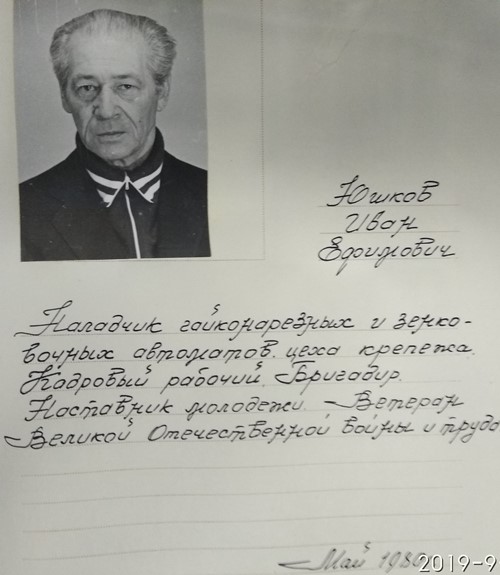 Юшков
Иван
Ефимович
Наладчик гайконарезных и зенко-
вочных автоматов цеха крепежа.
Кадровый рабочий, Бригадир.
Наставник молодежи. Ветеран
Великой Отечественной войны и труда
Май
2019-9